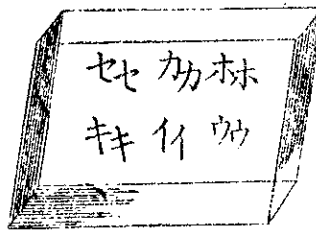 セセ カカ ホホ
キキ イイ ウウ